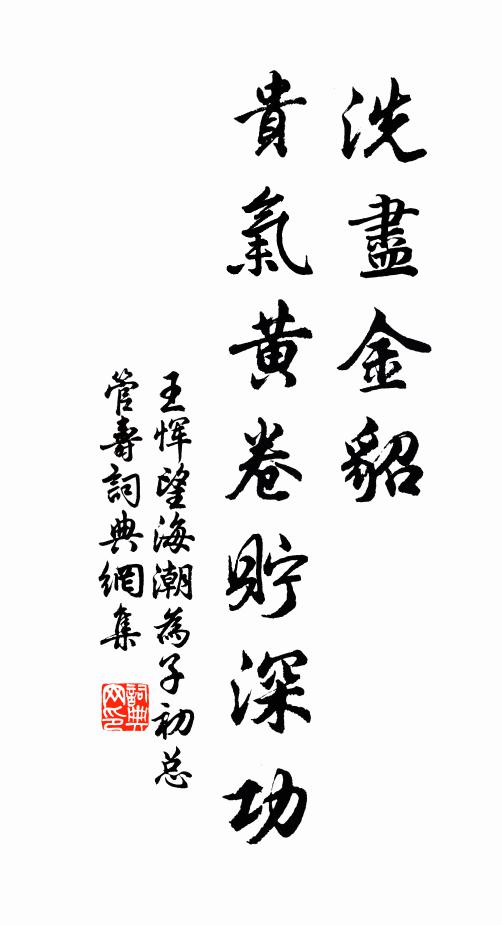 洗盡金貂
貴氣黄卷貯深功
王惲望海潮為子初总
管壽詞典網集
詞典网印